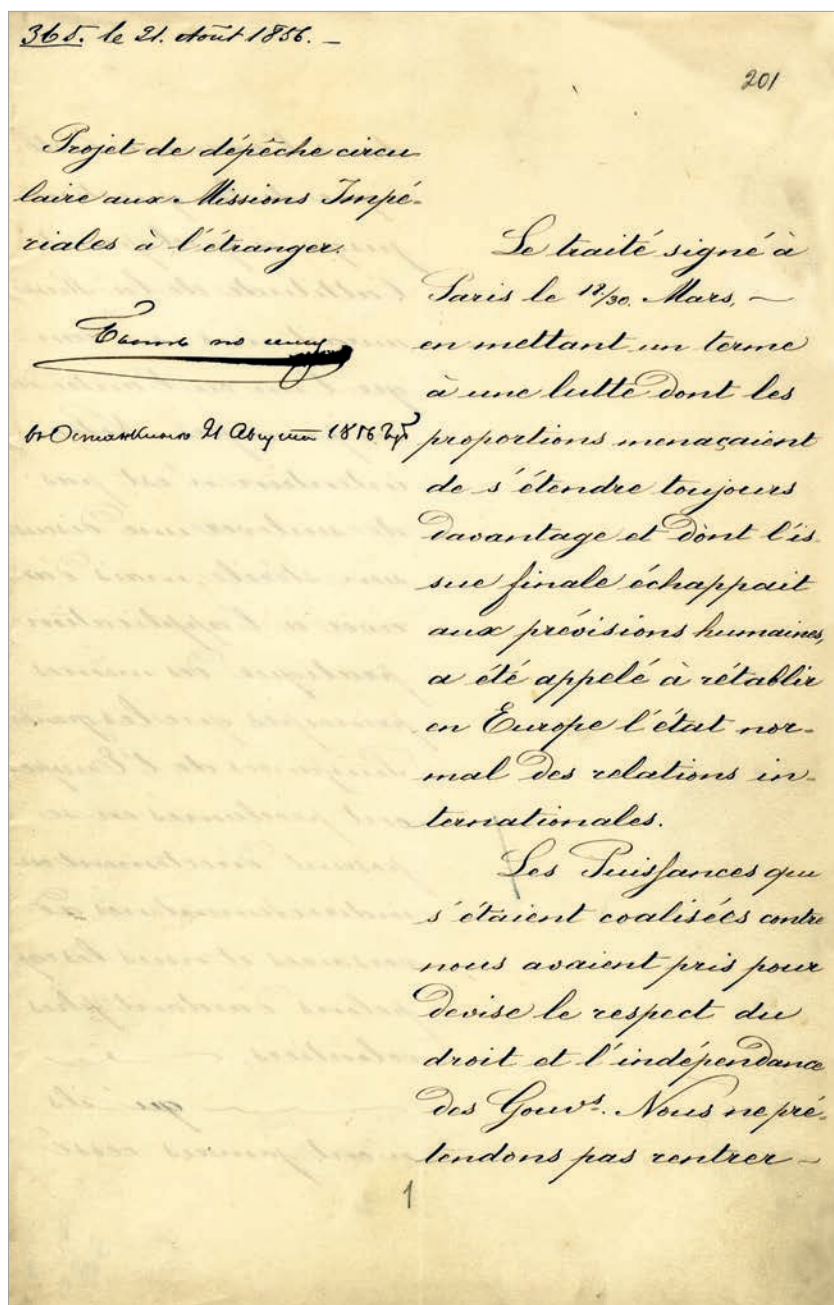 365. le 21. Août 1856. —
201
Projet de dépêche circu
laire aux Missions Impé-
riales à l'étranger.
Быть по сему
въ Останкино 21 Августа 1856
Le traité signé à
Paris le 18/30. Mars, —
en mettant un terme
à une lutte dont les
proportions menaçaient
de s'étendre toujours
davantage et dont l'is-
sue finale échappait
aux prévisions humaines,
a été appelé à rétablir
en Europe l'état nor-
mal des relations in-
ternationales.
Les Puissances qui
s'étaient coalisées contre
nous avaient pris pour
devise le respect du
droit et l'indépendance
des Gouvs. Nous ne pré-
tendons pas rentrer —
1